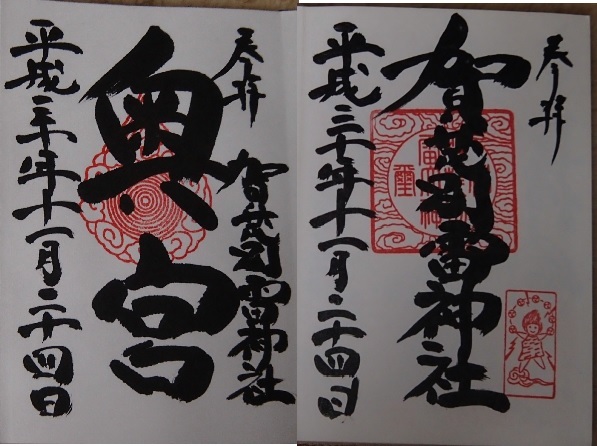 奉拝
賀茂別雷神社
平成三十年十一月二十四日
奉拝
賀茂別雷神社
奥宮
平成三十年十一月二十四日